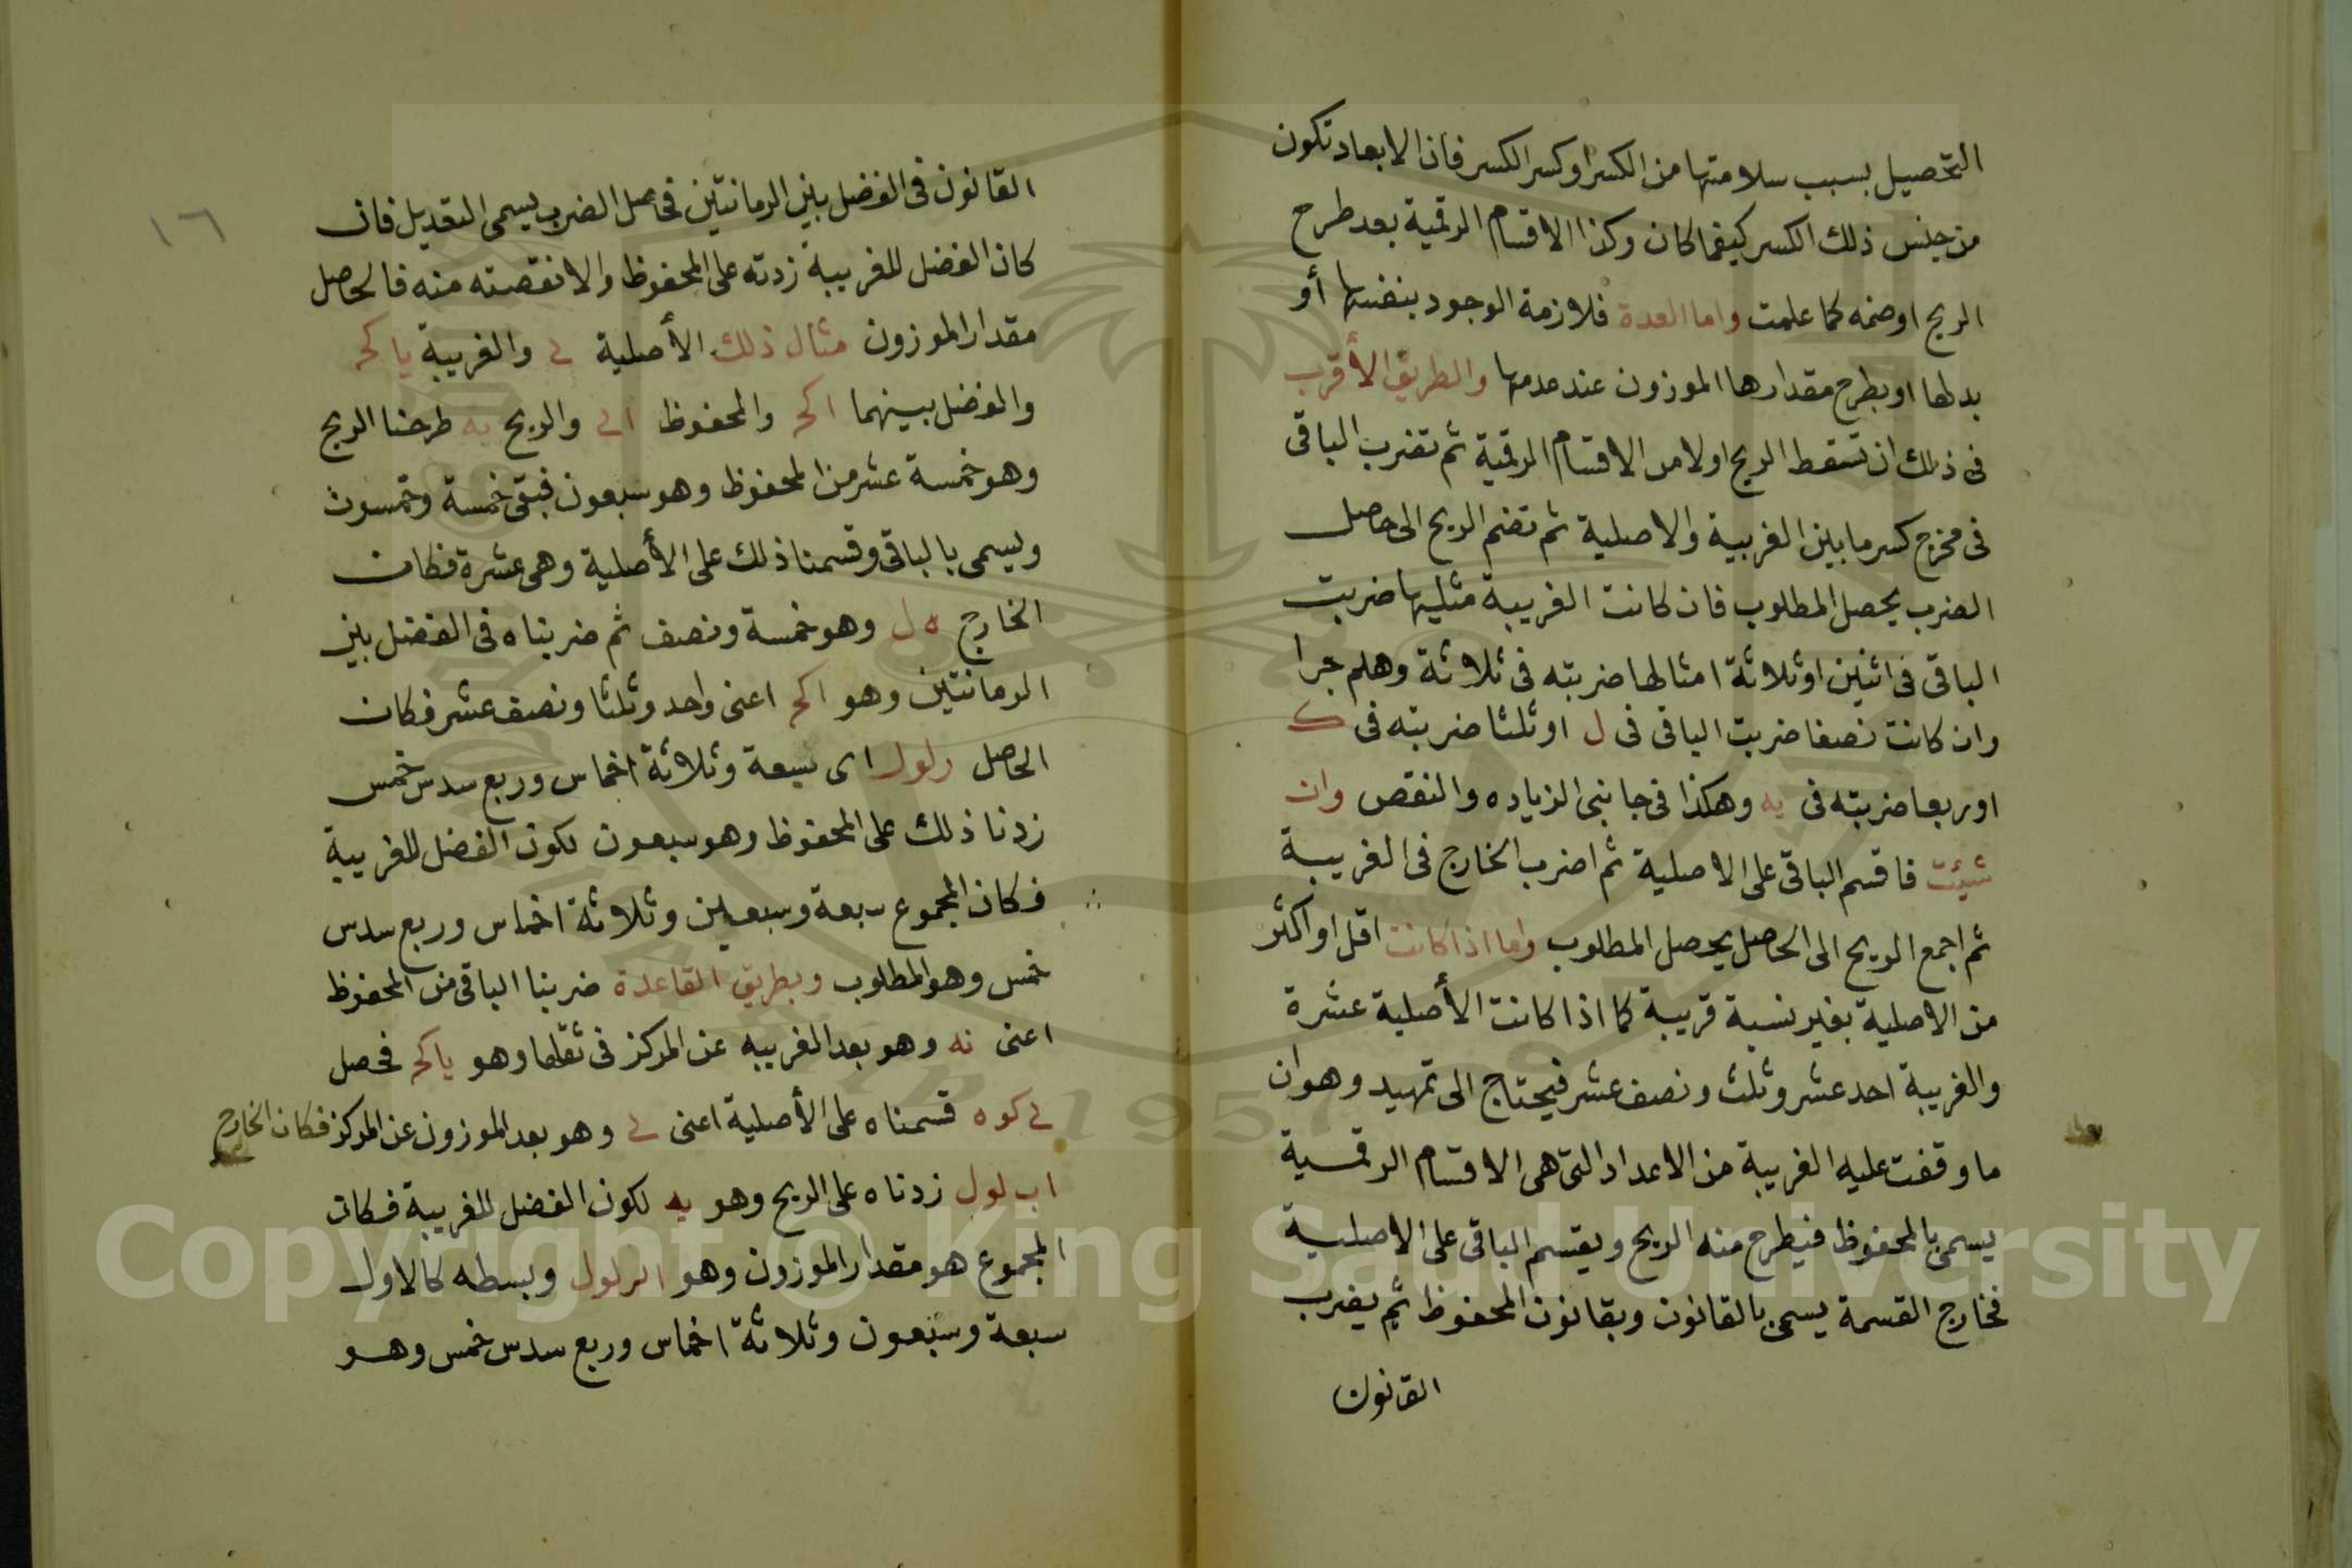 التحصيل بسبب سلامتها من الكسر او كسر الكسر فان الابعاد تكون
من جنس ذلك الكسر كيفما كان وكذا الاقسام الرقمية بعد طرح
الريح او ضمه كما علمت واما العدة فلازمة الوجود بنفسها أو
بدلها او بطرح مقدارها الموزون عند عدمها والطريق الأقرب
فى ذلك ان تسقط الريح اولا من الاقسام الرقمية ثم تضرب الباقى
فى مخرج كسر ما بين الغريبة والاصلية ثم تضم الريح الى حاصل
الضرب يحصل المطلوب فان كانت الغريبة مثليها ضربت
الباقى فى اثنين او ثلاثة امثالها ضربته فى ثلاثة وهلم جرا
وان كانت نصفا ضربت الباقى فى ل او ثلثا ضربته فى ك
او ربعا ضربته فى يه وهكذا فى جانبى الزياده والنقص وان
شيئت فاقسم الباقى على الاصلية ثم اضرب الخارج فى الغريبة
ثم اجمع الريح الى الحاصل يحصل المطلوب واما اذا كانت اقل او اكثر
من الاصلية بغير نسبة قريبة كما اذا كانت الأصلية عشرة
والغريبة احد عشر وثلث ونصف عشر فيحتاج الى تمهيد وهوان
ما وقفت عليه الغريبة من الاعداد التى هى الاقسام الرقمية
يسمى بالمحفوظ فيطرح منه الريح ويقسم الباقى على الاصلية
فخارج القسمة يسمى بالقانون وبقانون المحفوظ ثم يضرب
القانون
١٦
القانون فى الفضل بين الرمانتين فحاصل الضرب يسمى التعديل فان
كان الفضل للغريبة زدته على المحفوظ والا نقصته منه فالحاصل
مقدار الموزون مثال ذلك الأصلية ى والغريبة يا كح
والفضل بينهما ا كح والمحفوظ ا ى والريح يه طرحنا الريح
وهو خمسة عشر من المحفوظ وهو سبعون فبقى خمسة وخمسون
ويسمى بالباقى وقسمنا ذلك على الأصلية وهى عشرة فكان
الخارج ه ل وهو خمسة ونصف ثم ضربناه فى الفضل بين
الرمانتين وهو ا كح اعنى واحد وثلثا ونصف عشر فكان
الحاصل ز لو ل اى سبعة وثلاثة اخماس وربع سدس خمس
زدنا ذلك على المحفوظ وهو سبعون لكون الفضل للغريبة
فكان المجموع سبعة وسبعين وثلاثة اخماس وربع سدس
خمس وهو المطلوب وبطريق القاعدة ضربنا الباقى من المحفوظ
اعنى نه وهو بعد الغريبه عن المركز فى ثقلها وهو يا كح فحصل
ى كو ه قسمناه على الأصلية اعنى ى وهو بعد الموزون عن المركز فكان الخارج
ا ب لو ل زدناه على الريح وهو يه لكون الفضل للغريبة فكان
المجموع هو مقدار الموزون وهو ا يز لو ل وبسطه كالاول
سبعة وسبعون وثلاثة اخماس وربع سدس خمس وهو
Copyright © King Saud University
1957